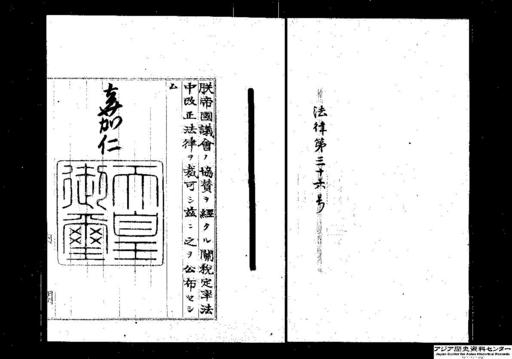 法律第三十六号
朕帝國議會ノ協賛ヲ經タル關稅定率法
中改正法律ヲ裁可シ茲ニ之ヲ公布セシ
ム
嘉仁
天皇
御璽
アジア歴史資料センター
Japan Center for Asian Historical Records